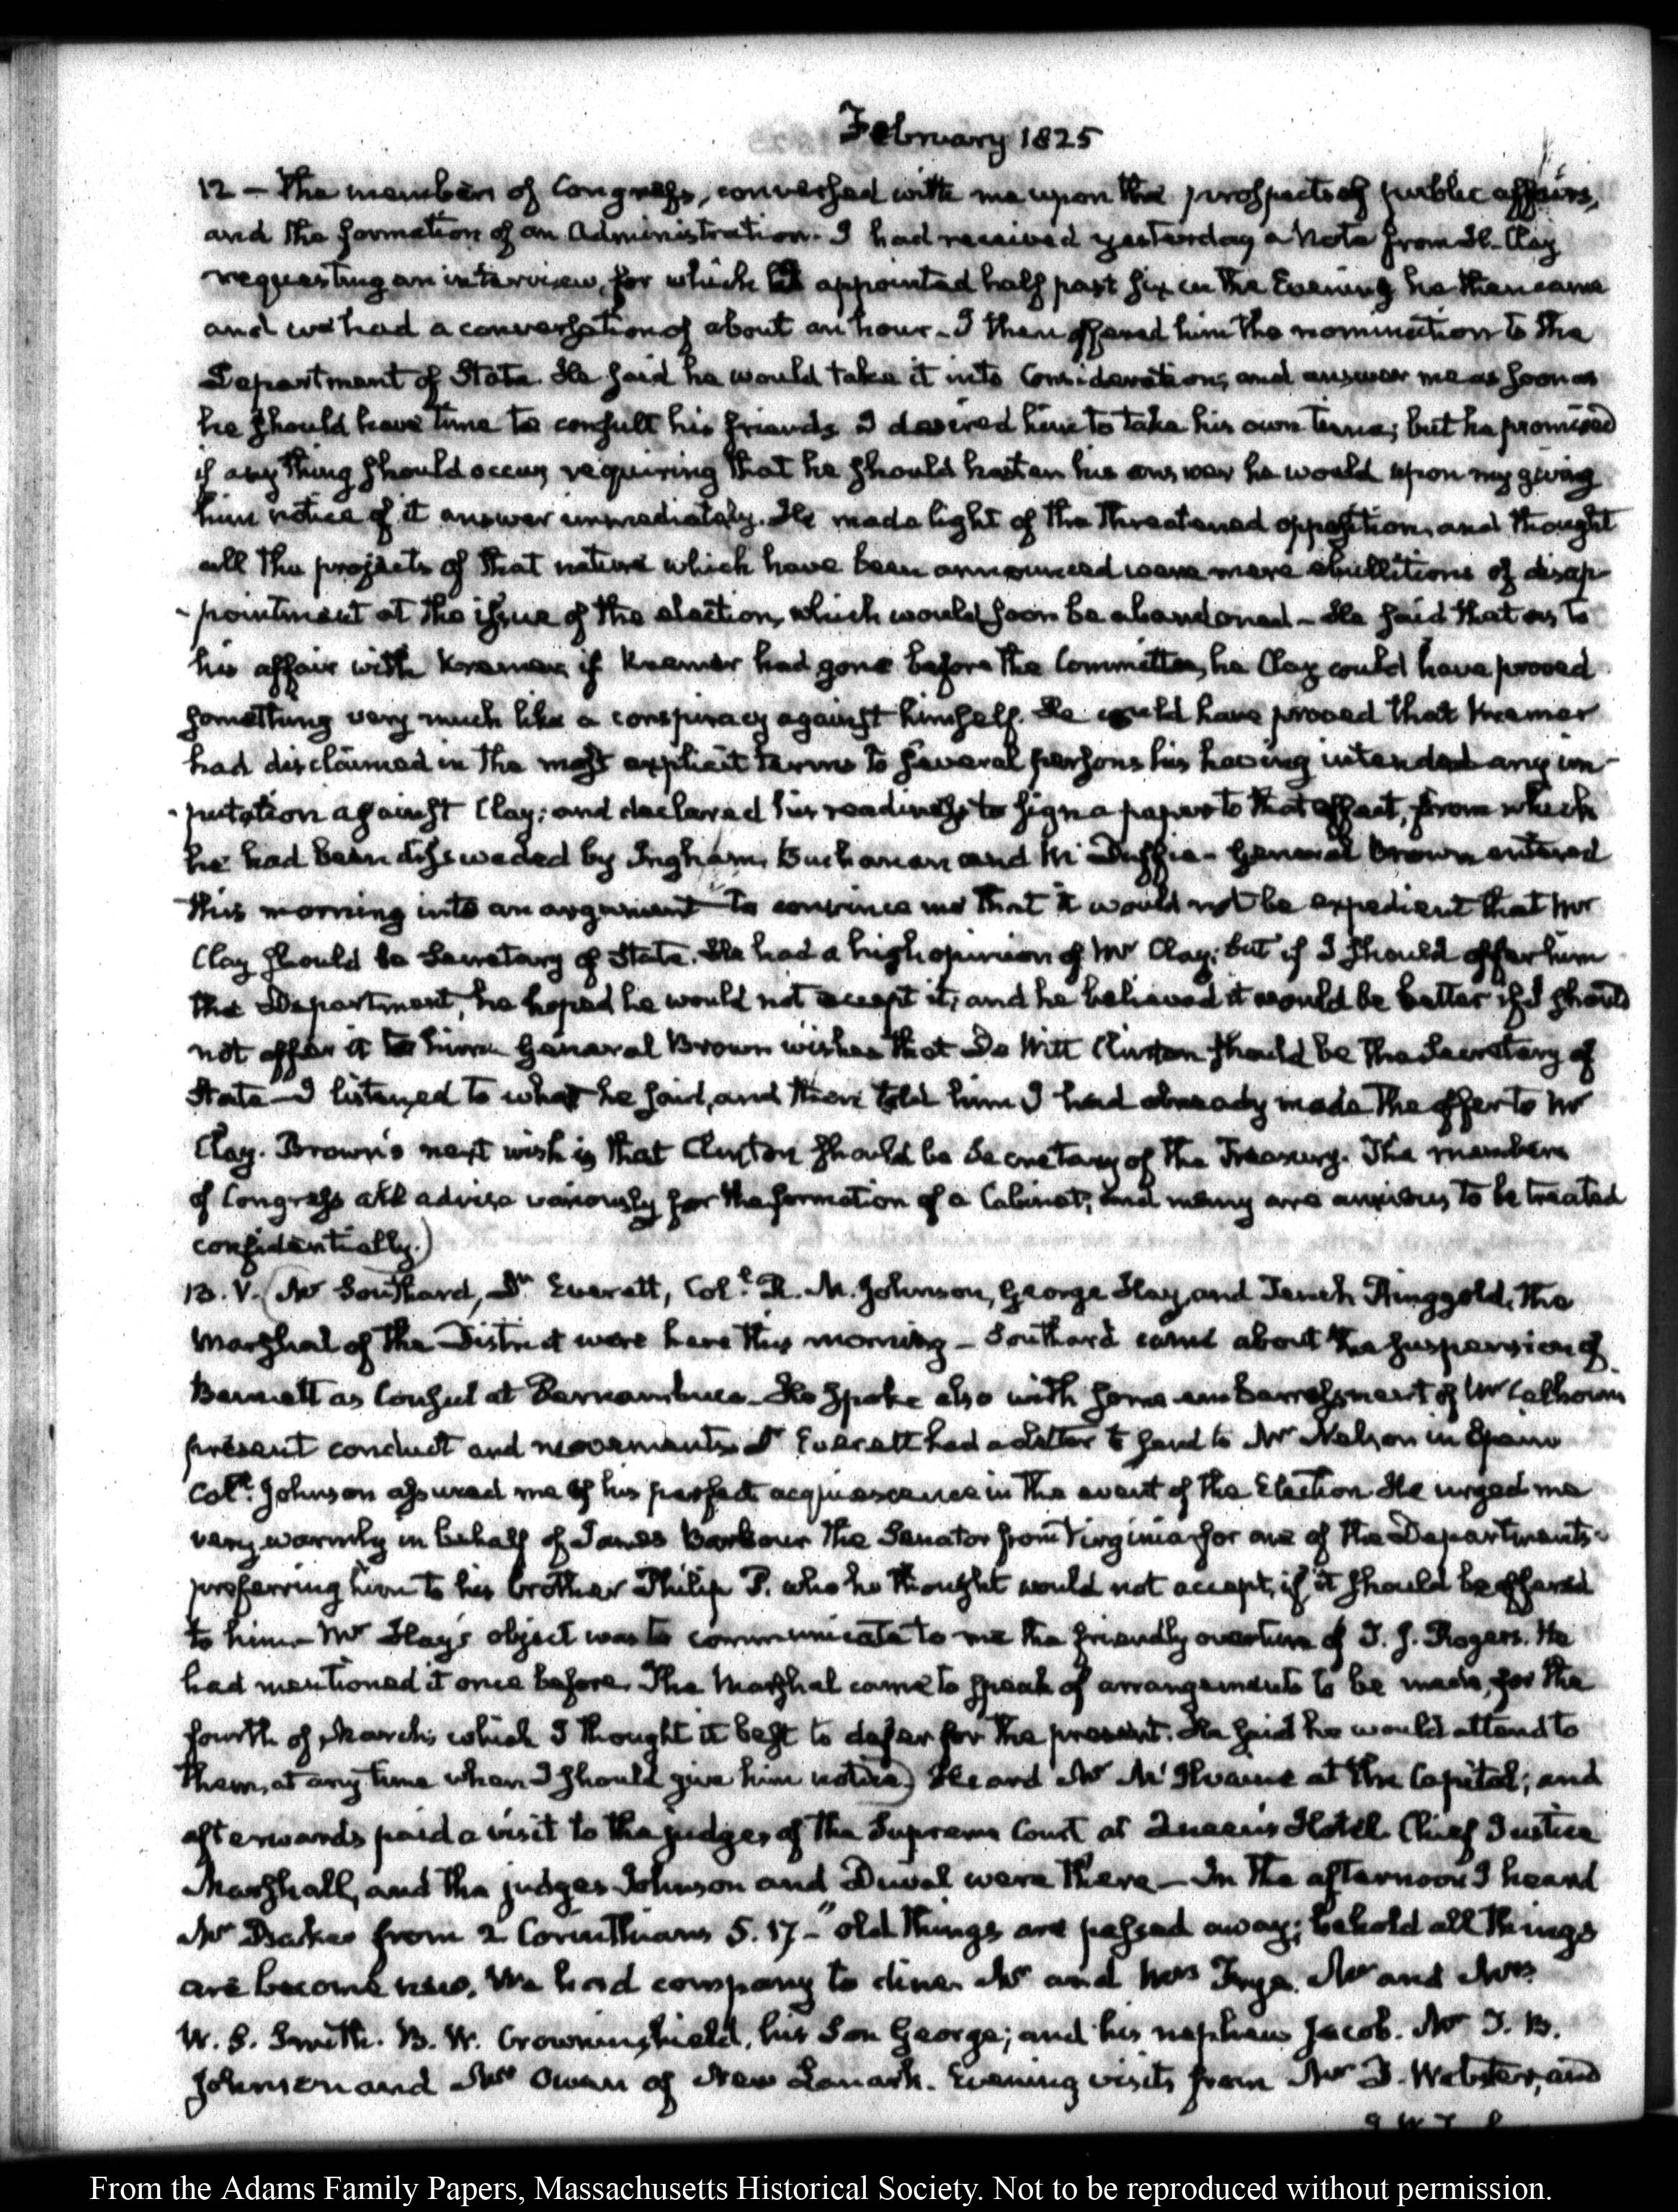 February 1825
12 — The members of Congress, conversed with me upon the prospects of public affairs,
and the formation of an Administration. I had received yesterday a Note from H. Clay
requesting an interview, for which I appointed half past six in the Evening he then came
and we had a conversation of about an hour — I then offered him the nomination to the
Department of State. He said he would take it into Consideration; and answer me as soon as
he should have time to consult his friends. I desired him to take his own time; but he promised
if any thing should occur, requiring that he should hasten his answer he would upon my giving
him notice of it answer immediately. He made light of the threatened opposition, and thought
all the projects of that nature which have been announced were mere ebullitions of disap-
-pointment at the issue of the election, which would soon be abandoned — He said that as to
his affair with Kremer, if Kremer had gone before the Committee, he Clay could have proved
something very much like a conspiracy against himself. He could have proved that Kremer
had disclaimed in the most explicit terms to several persons his having intended any im-
-putation against Clay; and declared his readiness to sign a paper to that effect, from which
he had been disswaded by Ingham, Buchanan and McDuffie — General Brown entered
this morning into an argument to convince me that it would not be expedient that Mr
Clay should be Secretary of State. He had a high opinion of Mr Clay; but if I should offer him
the Department, he hoped he would not accept it; and he believed it would be better if I should
not offer it to him. General Brown wishes that De Witt Clinton should be the Secretary of
State — I listened to what he said, and then told him I had already made the offer to Mr
Clay. Brown's next wish is that Clinton should be Secretary of the Treasury. The members
of Congress all advise variously for the formation of a Cabinet; and many are anxious to be treated
confidentially.)
13. V. (Mr Southard, Dr Everett, Coll. R. M. Johnson, George Hay, and Tench Ringgold, the
Marshal of the District were here this morning — Southard came about the suspension of
Bennett as Consul at Pernambuco — He spoke also with some embarrassment of Mr Calhoun's
present conduct and movements. Dr Everett had a letter to send to Mr Nelson in Spain
Coll. Johnson assured me of his perfect acquiescence in the event of the Election. He urged me
very warmly in behalf of James Barbour the Senator from Virginia for one of the Departments,
preferring him to his brother Philip P. who he thought would not accept, if it should be offered
to him — Mr Hay's object was to communicate to me the friendly overture of T. J. Rogers. He
had mentioned it once before. The Marshal came to speak of arrangements to be made, for the
fourth of March; which I thought it best to defer for the present. He said he would attend to
them, at any time when I should give him notice) Heard Mr McIlvaine at the Capitol; and
afterwards paid a visit to the judges of the Supreme Court at Queen's Hotel. Chief Justice
Marshall, and the judges Johnson and Duval were there — In the afternoon I heard
Mr Baker from 2 Corinthians 5. 17 — "old things are passed away; behold all things
are become new. We had company to dine. Mr and Mrs Frye. Mr and Mrs
W. S. Smith. B. W. Crowninshield, his Son George; and his nephew Jacob. Mr J. B.
Johnson and Mr Owen of New Lanark. Evening visits from Mr D. Webster, and
From the Adams Family Papers, Massachusetts Historical Society. Not to be reproduced without permission.